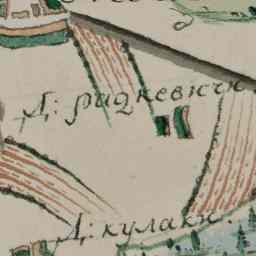 Д: радкевичи
Д: кулаки.